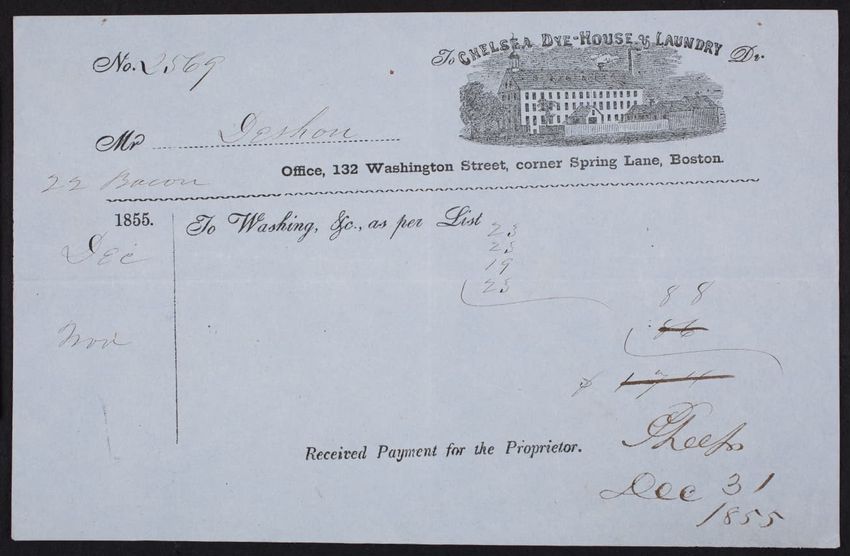 No. 2569
To CHELSEA DYE-HOUSE & LAUNDRY Dr.
Mr Deshon
22 Bacon
Office, 132 Washington Street, corner Spring Lane, Boston.
1855. To Washing, &c., as per List
Dec
23
23
19
23
88
Nov
86
$ 174
Received Payment for the Proprietor.
Dec 31
1855